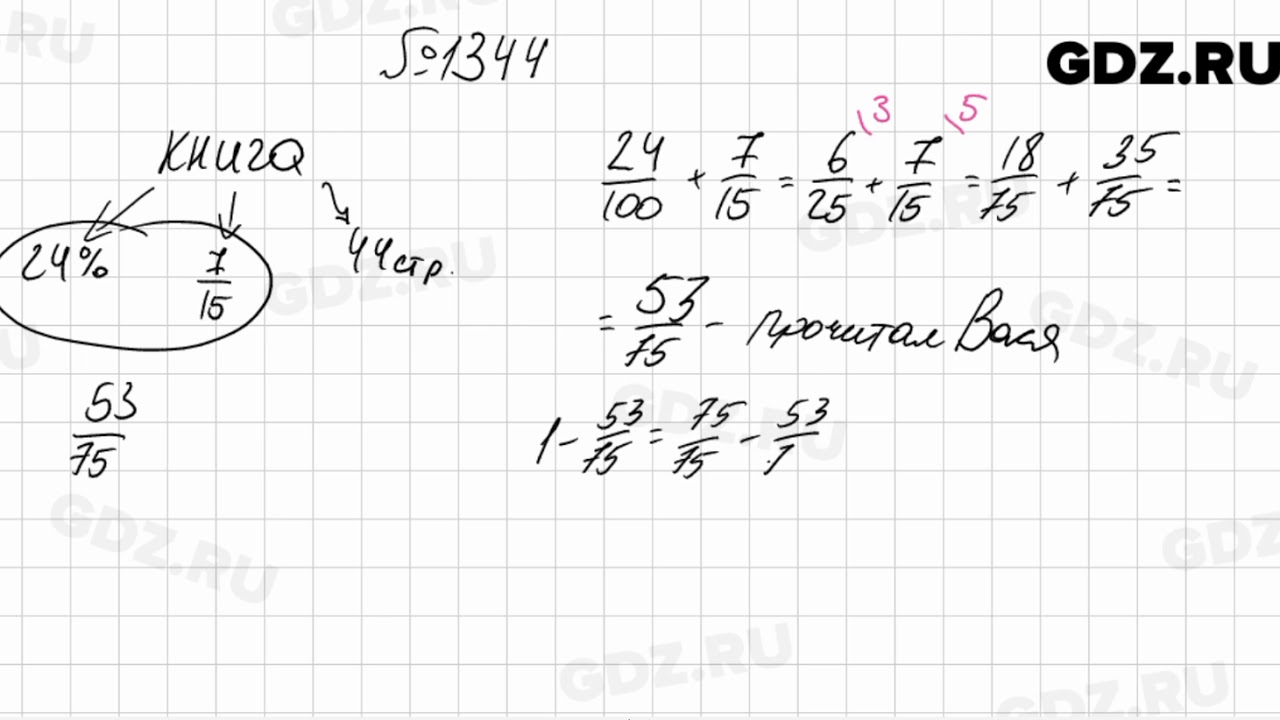 №1344
GDZ.RU
книга
24% 7/15 44 стр.
53/75
24/100 + 7/15 = 6/25 \3 + 7/15 \5 = 18/75 + 35/75 =
= 53/75 - прочитал Вася
1 - 53/75 = 75/75 - 53/7